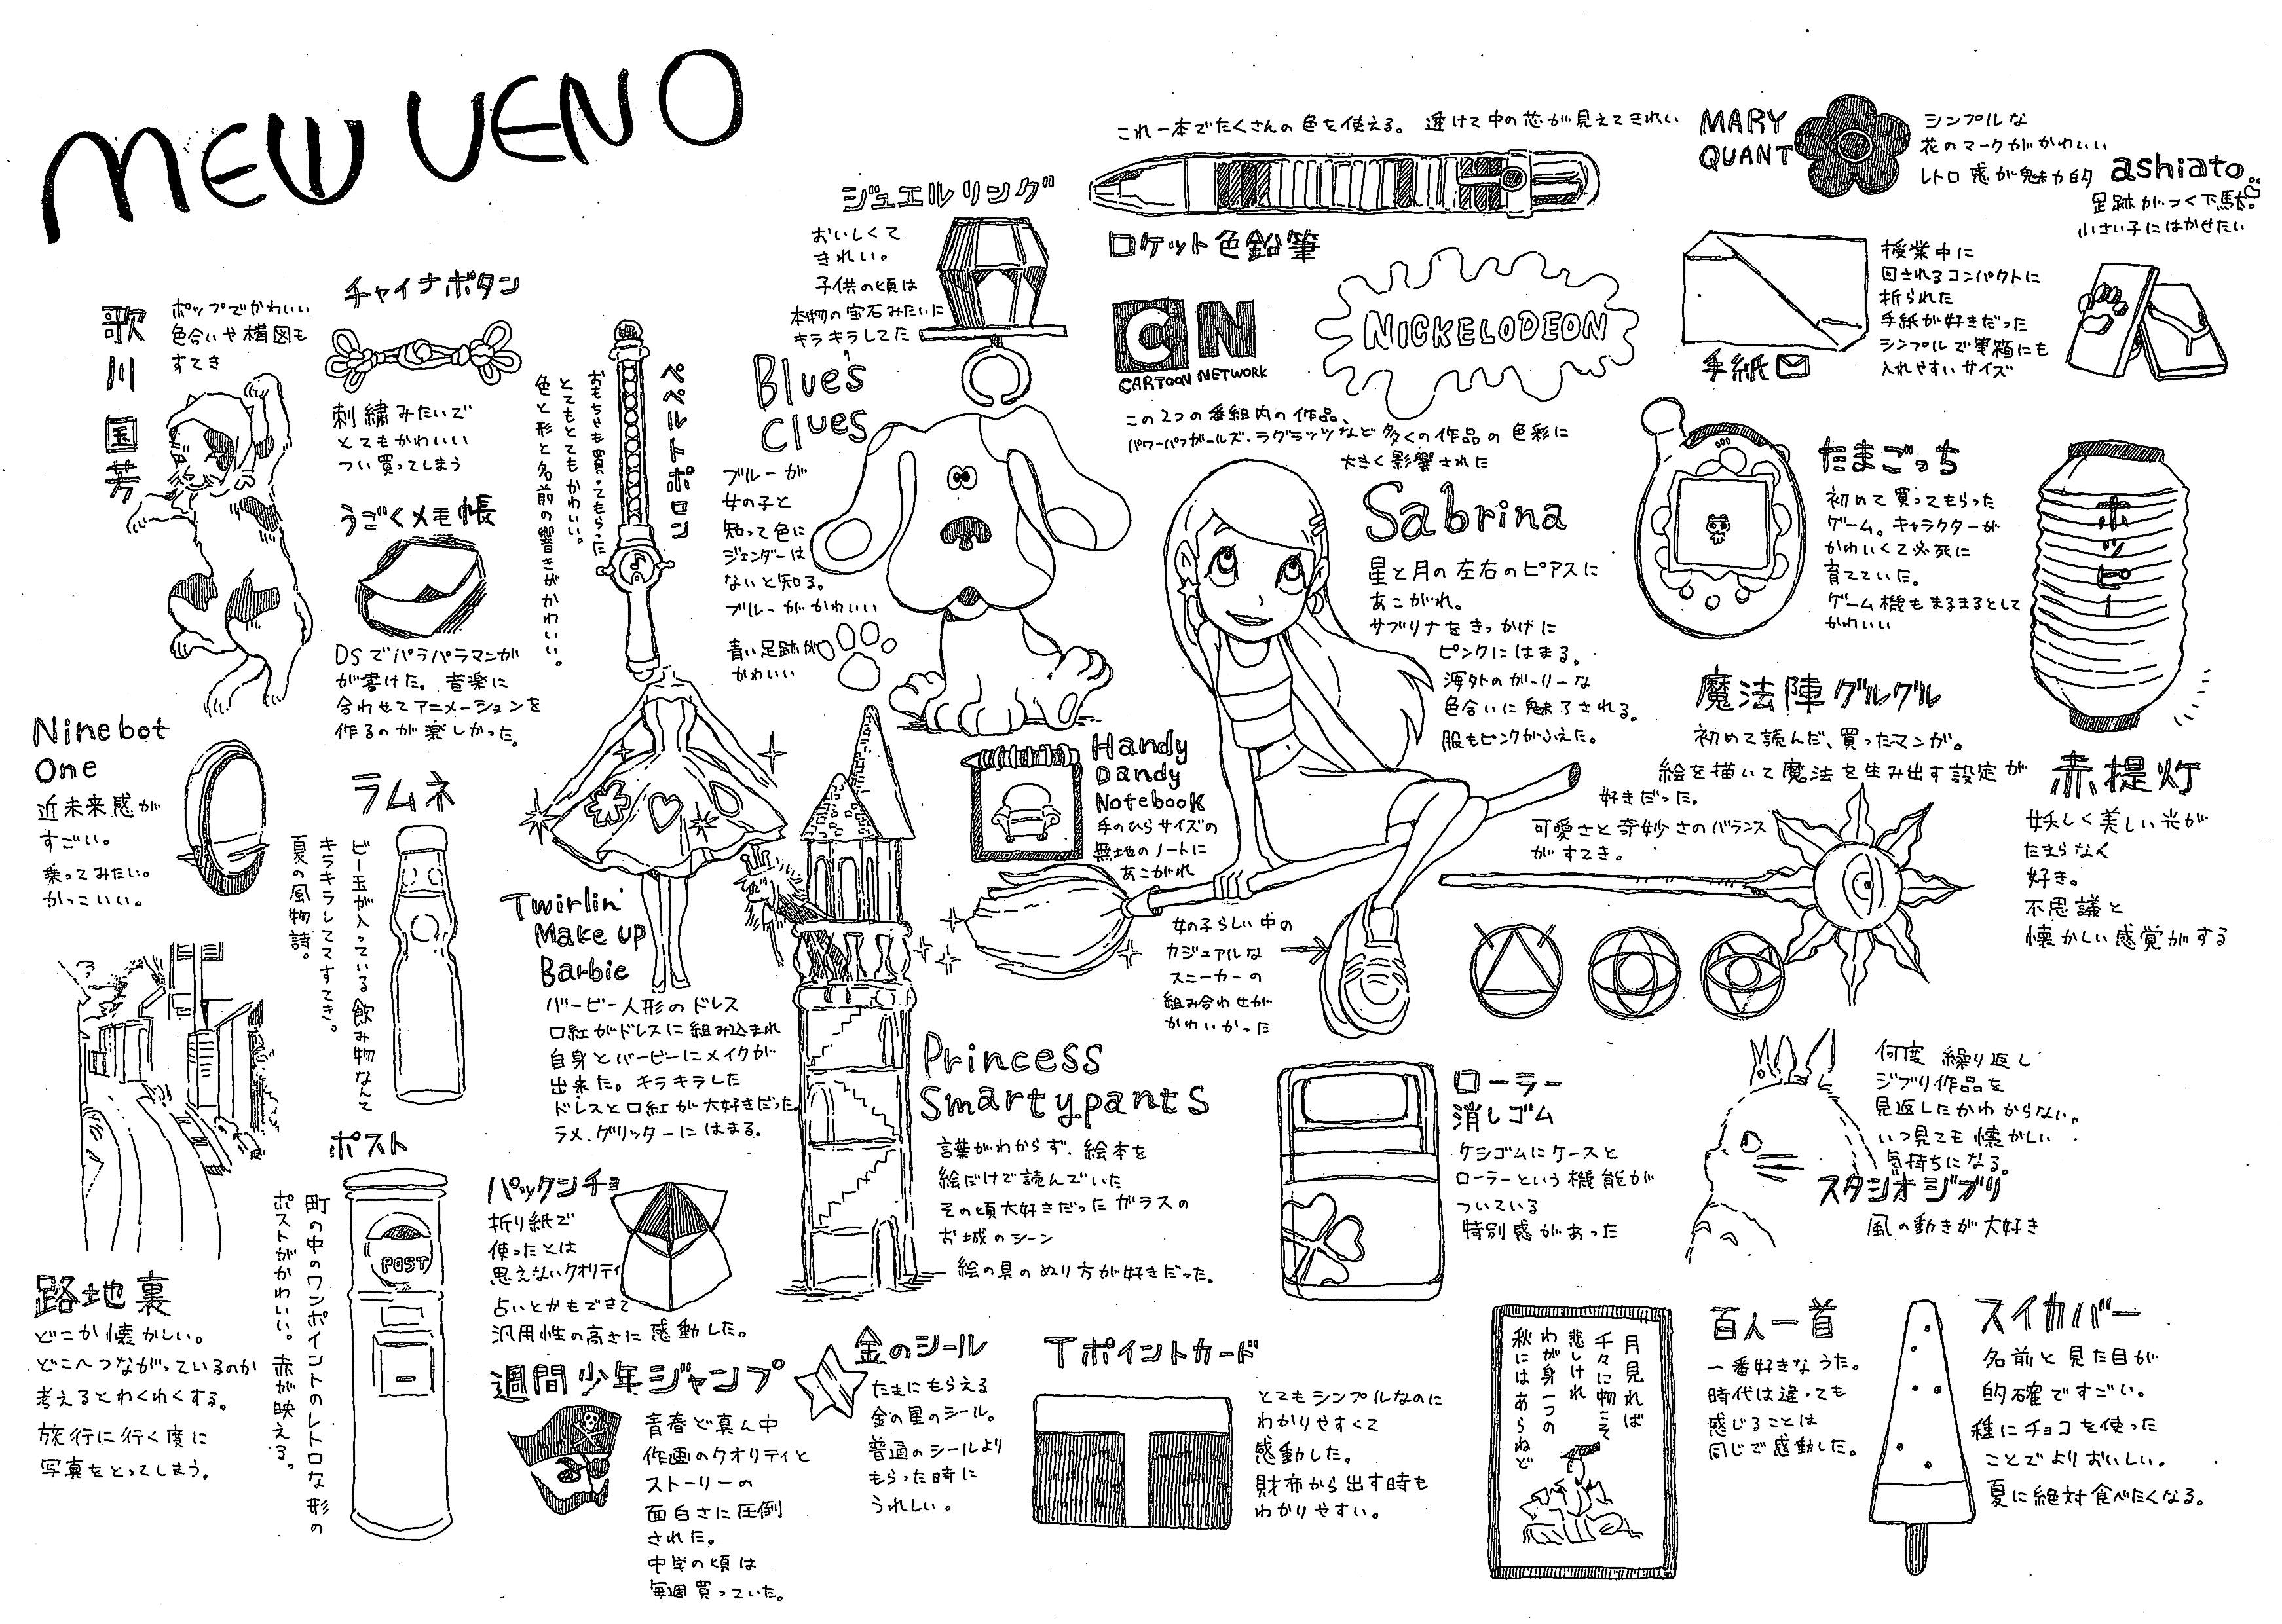 MEW UENO
歌川国芳
ポップでかわいい
色合いや構図も
すてき
チャイナボタン
刺繍みたいで
とてもかわいい
つい買ってしまう
うごくメモ帳
DSでパラパラマンガ
が書けた。音楽に
合わせてアニメーションを
作るのが楽しかった。
ペペルトポロン
おもちゃも買ってもらった
とてもとてもかわいい。
色と形と名前の響きがかわいい。
ジュエルリング
おいしくて
きれい。
子供の頃は
本物の宝石みたいに
キラキラしてた
Blue's
Clues
ブルーが
女の子と
知って色に
ジェンダーは
ないと知る。
ブルーがかわいい
青い足跡が
かわいい
これ一本でたくさんの色を使える。透けて中の芯が見えてきれい
ロケット色鉛筆
CN
CARTOON NETWORK
NICKELODEON
この2つの番組内の作品、
パワーパフガールズ・ラグラッツなど多くの作品の色彩に
大きく影響された
MARY
QUANT
シンプルな
花のマークがかわいい
レトロ感が魅力的
ashiato
足跡がつく下駄。
小さい子にはかせたい
手紙
授業中に
回されるコンパクトに
折られた
手紙が好きだった
シンプルで筆箱にも
入れやすいサイズ
Sabrina
星と月の左右のピアスに
あこがれ。
サブリナをきっかけに
ピンクにはまる。
海外のガーリーな
色合いに魅了される。
服もピンクがふえた。
女の子らしい中の
カジュアルな
スニーカーの
組み合わせが
かわいかった
たまごっち
初めて買ってもらった
ゲーム。キャラクターが
かわいくて必死に
育てていた。
ゲーム機もまるまるとして
かわいい
ホッピー
赤提灯
妖しく美しい光が
たまらなく
好き。
不思議と
懐かしい感覚がする
魔法陣グルグル
初めて読んだ、買ったマンガ。
絵を描いて魔法を生み出す設定が
好きだった。
可愛さと奇妙さのバランス
がすてき。
Handy
Dandy
Notebook
手のひらサイズの
無地のノートに
あこがれ
Ninebot
One
近未来感が
すごい。
乗ってみたい。
かっこいい。
ラムネ
ビー玉が入っている飲み物なんて
キラキラしててすてき。
夏の風物詩。
Twirlin'
Make up
Barbie
バービー人形のドレス
口紅がドレスに組み込まれ
自身とバービーにメイクが
出来た。キラキラした
ドレスと口紅が大好きだった。
ラメ、グリッターにはまる。
Princess
Smartypants
言葉がわからず、絵本を
絵だけで読んでいた
その頃大好きだったガラスの
お城のシーン
絵の具のぬり方が好きだった。
ローラー
消しゴム
ケシゴムにケースと
ローラーという機能が
ついている
特別感があった
何度繰り返し
ジブリ作品を
見返したかわからない。
いつ見ても懐かしい
気持ちになる。
スタジオジブリ
風の動きが大好き
路地裏
どこか懐かしい。
どこへつながっているのか
考えるとわくわくする。
旅行に行く度に
写真をとってしまう。
ポスト
POST
町の中のワンポイントのレトロな形の
ポストがかわいい。赤が映える。
パックンチョ
折り紙で
使ったとは
思えないクオリティ
占いとかもできて
汎用性の高さに感動した。
週間少年ジャンプ
青春ど真ん中
作画のクオリティと
ストーリーの
面白さに圧倒
された。
中学の頃は
毎週買っていた。
金のシール
たまにもらえる
金の星のシール。
普通のシールより
もらった時に
うれしい。
Tポイントカード
T
とてもシンプルなのに
わかりやすくて
感動した。
財布から出す時も
わかりやすい。
月見れば
千々に物こそ
悲しけれ
わが身一つの
秋にはあらねど
百人一首
一番好きなうた。
時代は違っても
感じることは
同じで感動した。
スイカバー
名前と見た目が
的確ですごい。
種にチョコを使った
ことでよりおいしい。
夏に絶対食べたくなる。